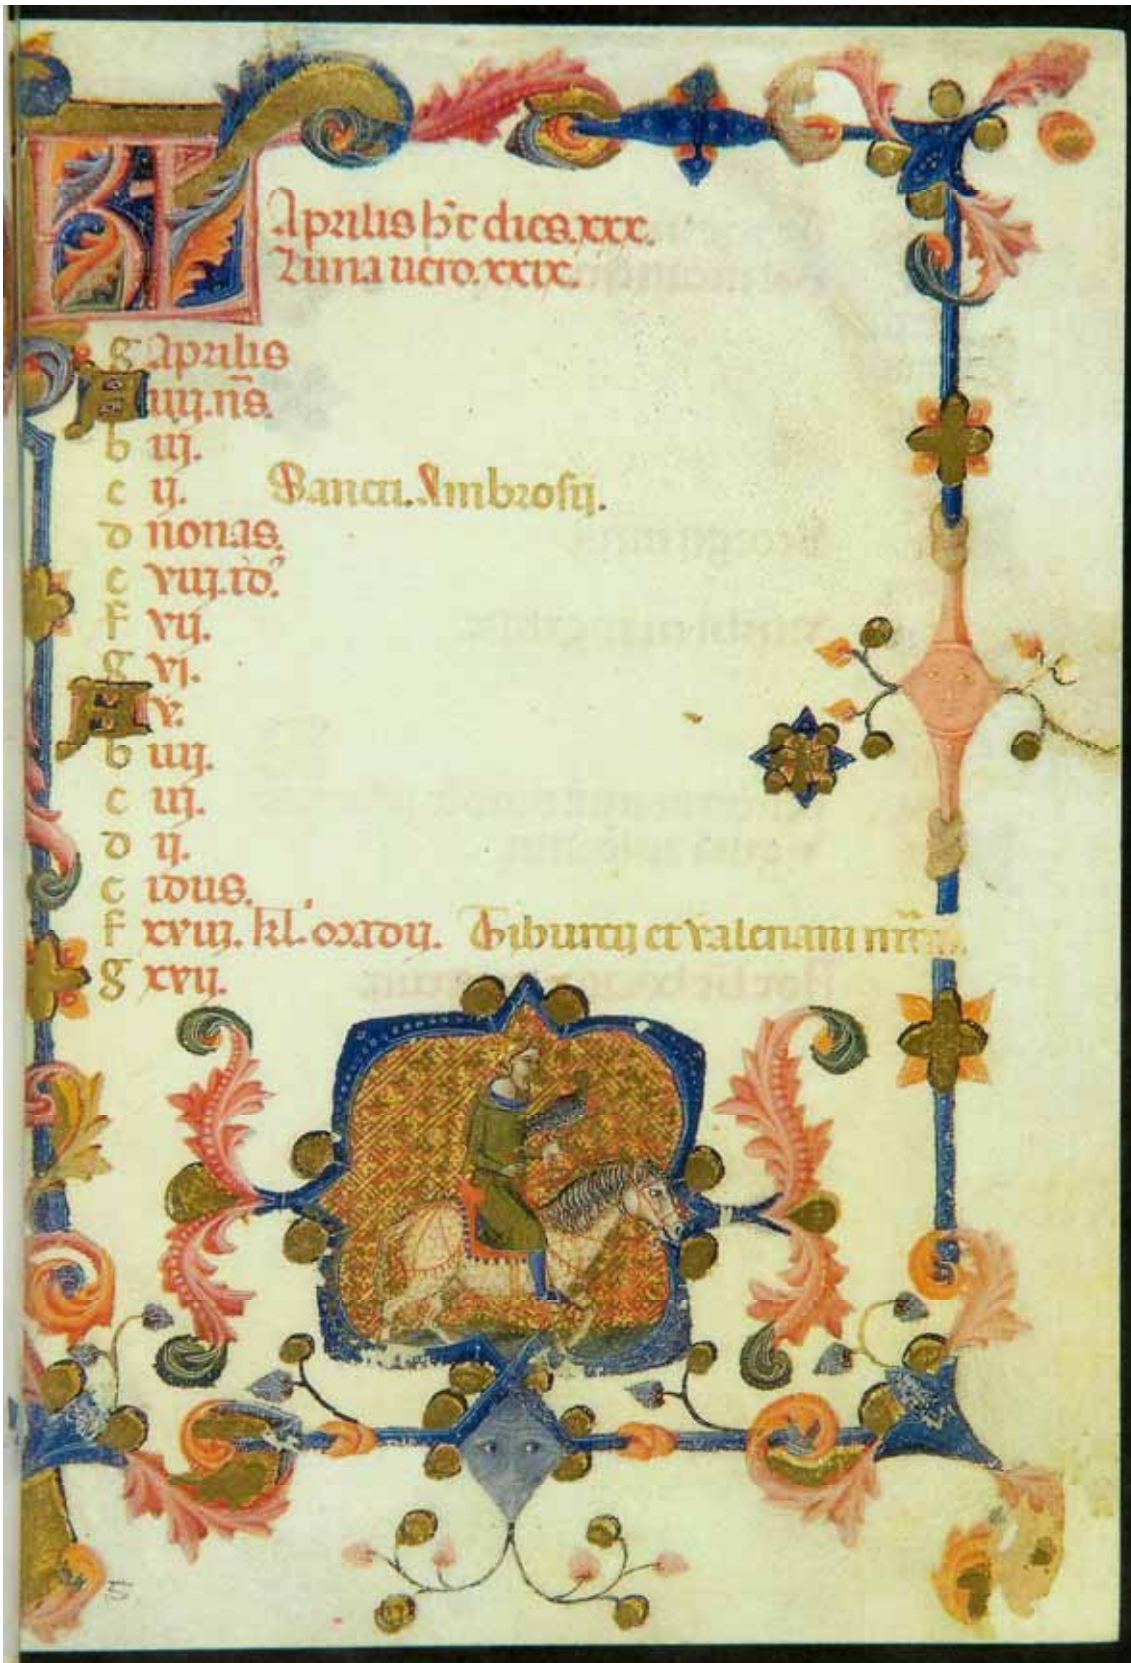 KL
Aprilis h̄t dies.xxx.
Luna uero.xxix.
g Aprilis
A iiij.n̄s.
b iij.
c ij. Sancti. Ambrosij.
d nonas.
e viij.id᷒.
f vij.
g vj.
A v.
b iiij.
c iij.
d ij.
e idus.
f xviij. kl. madij. Tiburtij et valeriani
g xvij.
5